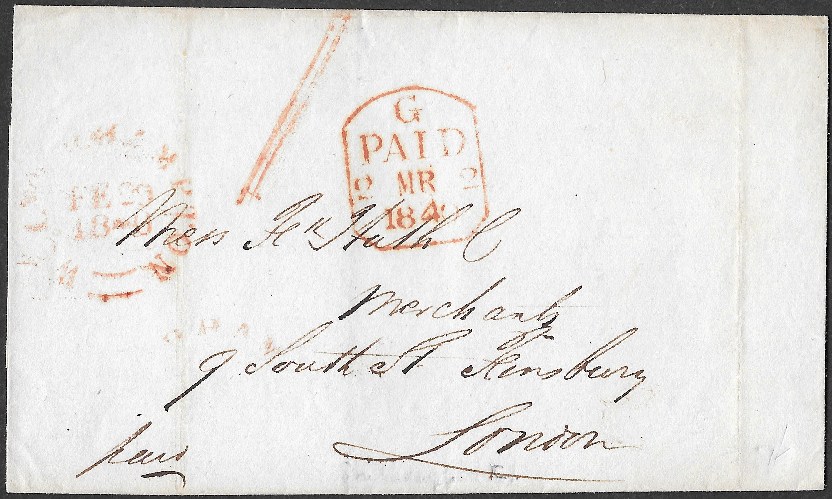 G
PAID
2 MR 2
184
FE 29
18
Mess Fk Huth C
Merchants
9 South St Finsbury
London
paid